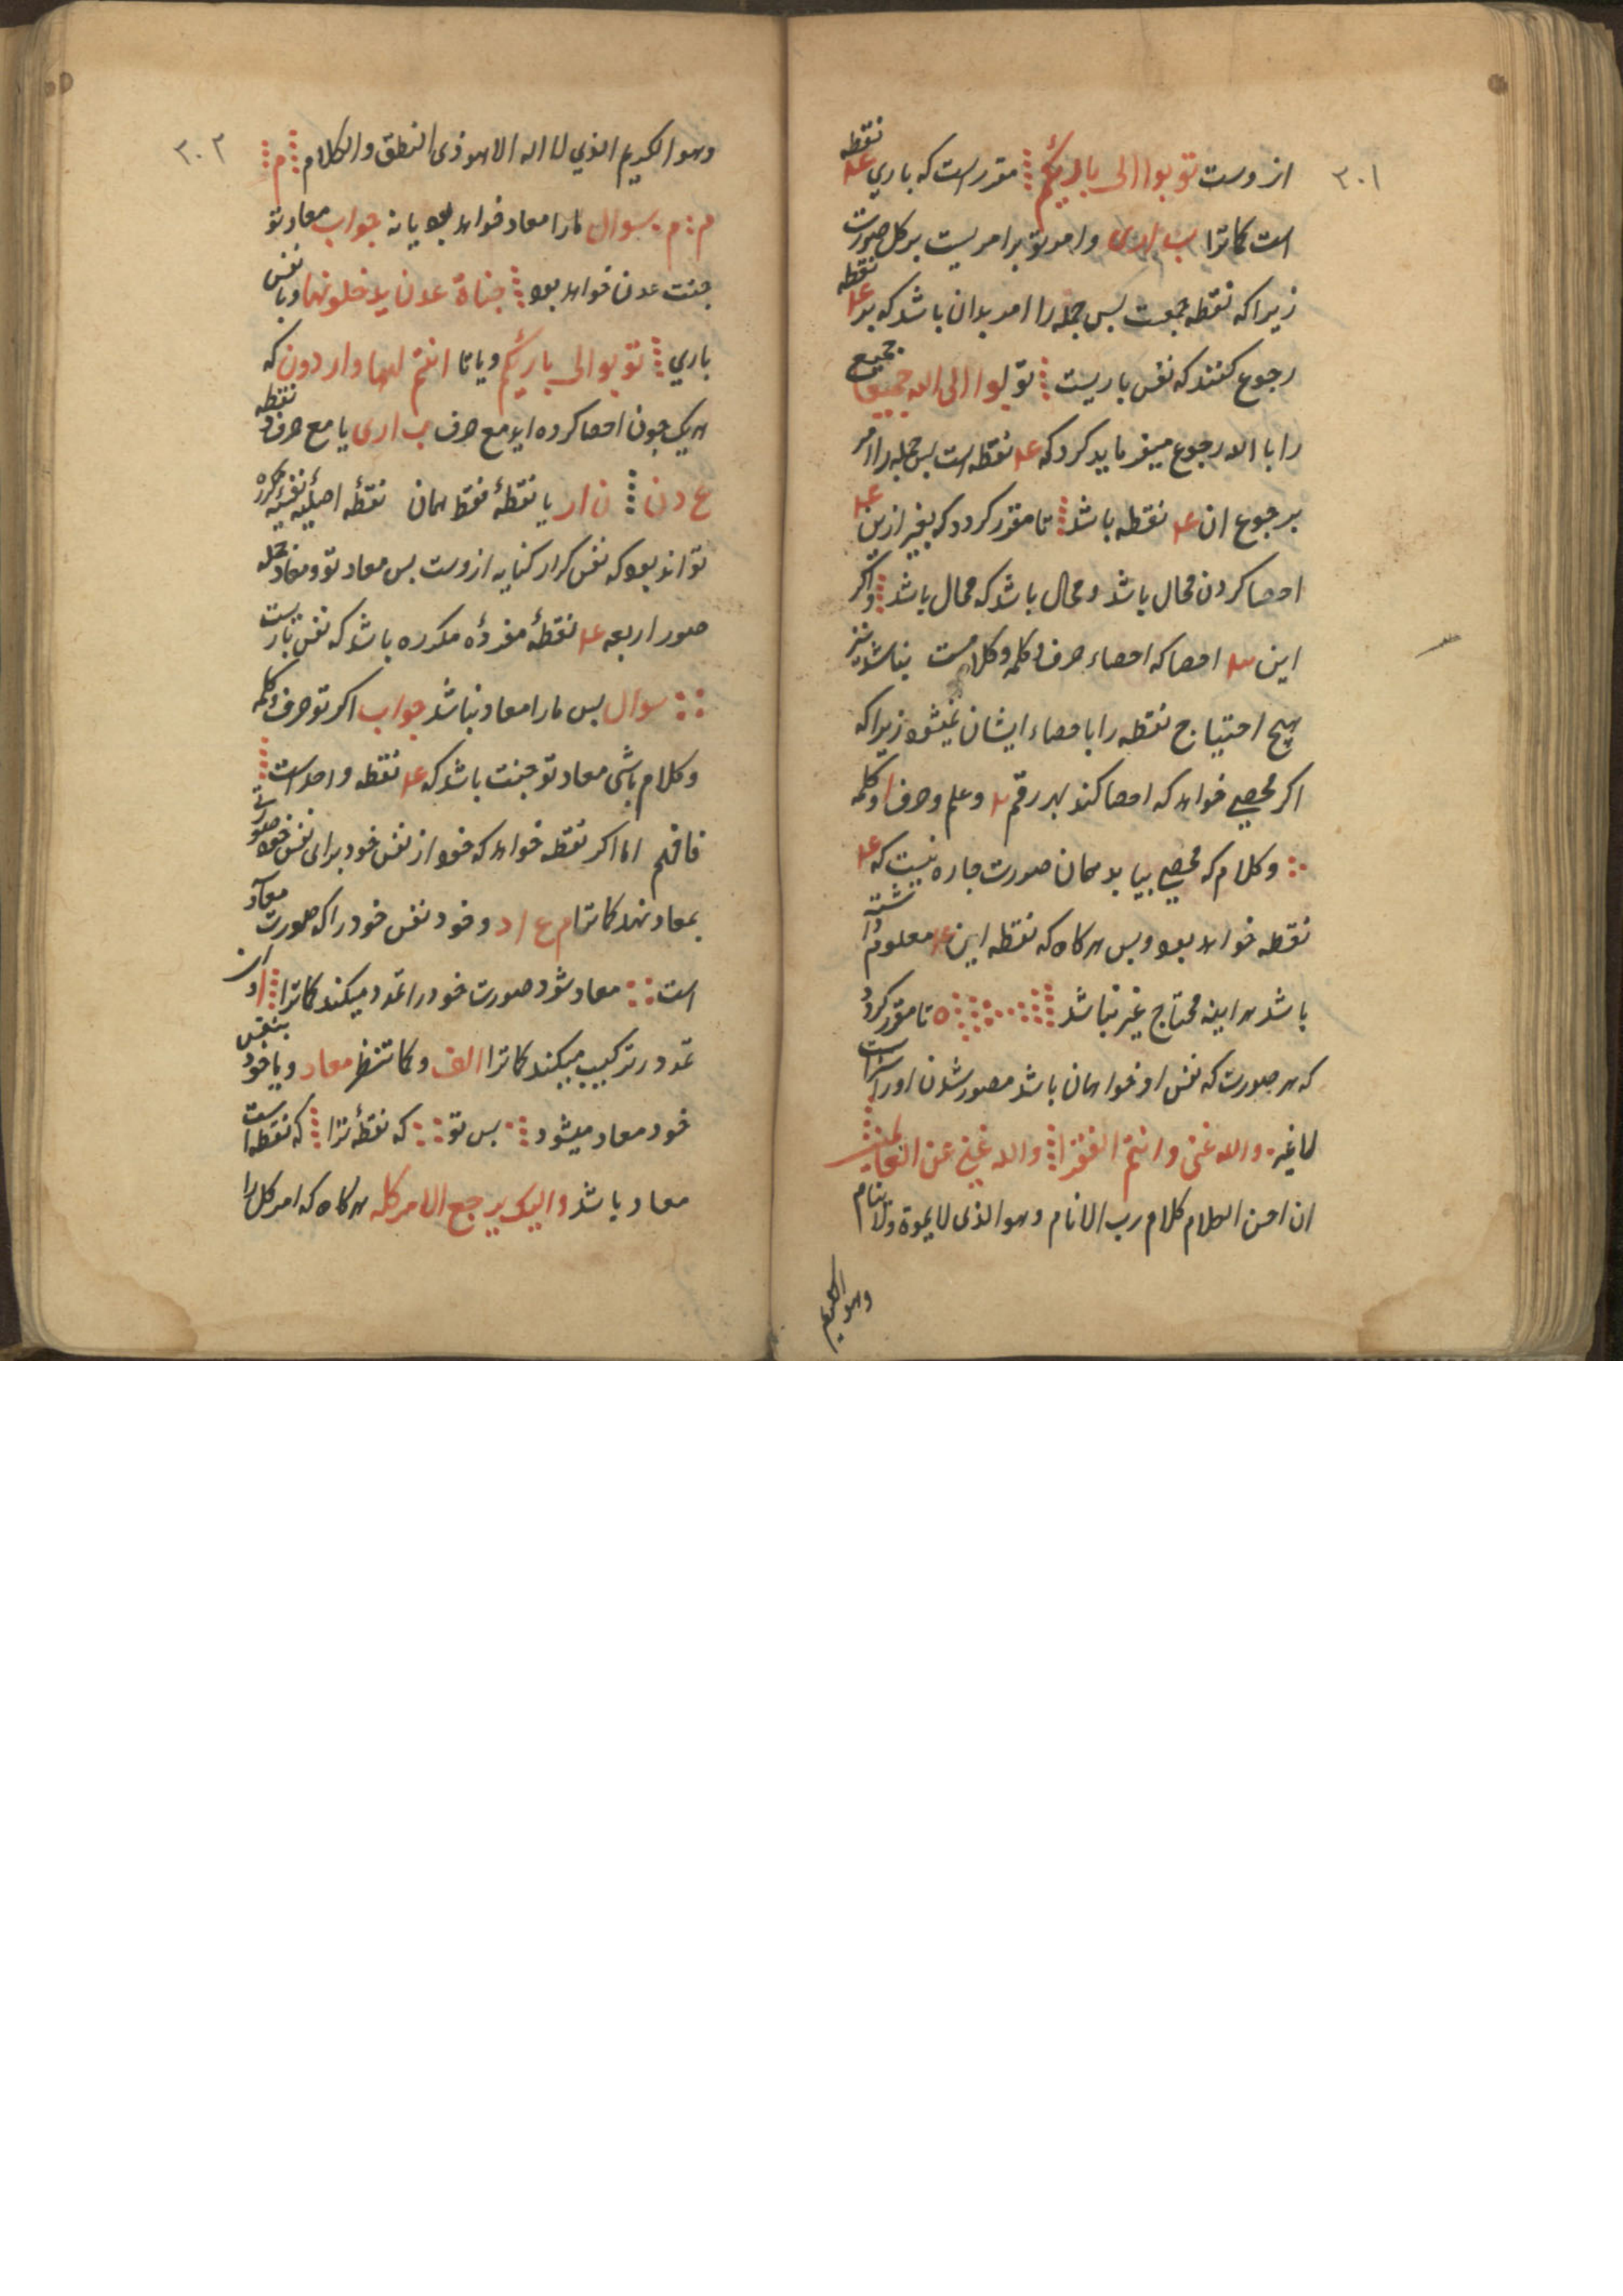 ۳۰۱
از وست توبوا الی بارئکم مقررست که باری عد نقطه
است کاترا ب ا ر ی وامر توبرا مریست بر کل صورت
زیرا که نقطه جمعست بس جمله را امر بدان باشد که بد عد نقطه
رجوع کنند که نفس باریست توبوا الی الله جمیعا جمیع
را با الله رجوع میفرماید کرد که عد نقطه است بس جمله را امر
برجوع ان عد نقطه باشد تا مقرر کردد که بغیر ازین عد
احصا کردن محال باشد ومحال باشد که محال باشد واکر
این احصا که احصاء حرف وکلمه وکلامست نباشد نیز
هیچ احتیاج نقطه را باحصاء ایشان نمیشود زیرا که
اکر محصی خواهد که احصا کند بهر رقم وعلم وحرف وکلمه
وکلام که محصی بیابد همان صورت جاره نیست که عد
نقطه خواهد بود وبس هرکاه که نقطه این عد معلوم داشته
باشد هراینه محتاج غیر نباشد ه تا مقرر کردد
که هر صورت که نفس او خواهان باشد مصور شدن اوراست
لا غیر والله غنی وانتم الفقرا والله غنی عن العالمین
ان احسن الکلام کلام رب الانام وهو الذی لا یموة ولا ینام
وهو الکریم
۳۰۲
وهو الکریم الذی لا اله الا هو ذی النطق والکلام م
م م سوال مارا معاد خواهد بود یا نه جواب معاد تو
جنت عدن خواهد بود جناة عدن یدخلونها ویا نفس
باری توبوا الی بارئکم ویا تا انتم لها واردون که
هریک جون احصا کرده اید مع حرف ب ا ر ی یا مع حرف نقطه
ع د ن ن ا ر یا نقطهٔ نقط همان نقطهٔ اصلیه نفسیه مکرره
تواند بود که نفس کرار کنایه ازوست بس معاد تو ومعاد جمله
صور اربعه عد نقطهٔ مفردهٔ مکرره باشد که نفس باریست
سوال بس مارا معاد نباشد جواب اکر تو حرف وکلمه
وکلام باشی معاد تو جنت باشد که عد نقطه واحد است
فافهم اما اکر نقطه خواهد که خود از نفس خود برای نفس خود صورتی
بمعاد نهد کاترا م ع ا د وخود نفس خود را که صورت معاد
است معاد شود صورت خود را تمدد میکند کاترا ا و ان
تمدد ر ترکیب میکند کاترا الف وکاتنظر معاد ویا خود بنفس
خود معاد میشود بس تو که نقطهٔ ترا که نقطه است
معاد باشد والیک یرجع الامر کله هرکاه که امر کل را